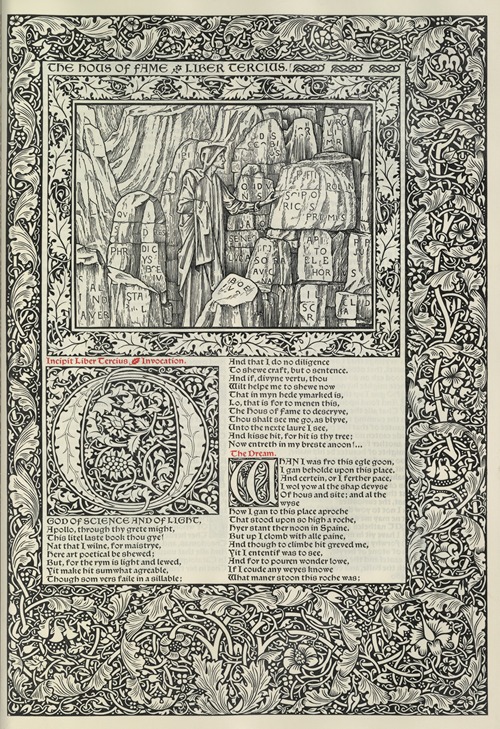 THE HOUS OF FAME LIBER TERCIUS.
SENE
Incipit Liber Tercius. Invocation.
O
GOD OF SCIENCE AND OF LIGHT,
Apollo, through thy grete might,
This litel laste book thou gye!
Nat that I wilne, for maistrye,
Here art poetical be shewed;
But, for the rym is light and lewed,
Yit make hit sumwhat agreable,
Though som vers faile in a sillable;
And that I do no diligence
To shewe craft, but o sentence.
And if, divyne vertu, thou
Wilt helpe me to shewe now
That in myn hede ymarked is,
Lo, that is for to menen this,
The Hous of Fame to descryve,
Thou shalt see me go, as blyve,
Unto the nexte laure I see,
And kisse hit, for hit is thy tree;
Now entreth in my breste anoon!...
The Dream.
WHAN I was fro this egle goon,
I gan beholde upon this place.
And certein, or I ferther pace,
I wol yow al the shap devyse
Of hous and site; and al the
wyse
How I gan to this place aproche
That stood upon so high a roche,
Hyer stant ther noon in Spaine.
But up I clomb with alle paine,
And though to climbe hit greved me,
Yit I ententif was to see,
And for to pouren wonder lowe,
If I coude any weyes knowe
What maner stoon this roche was;